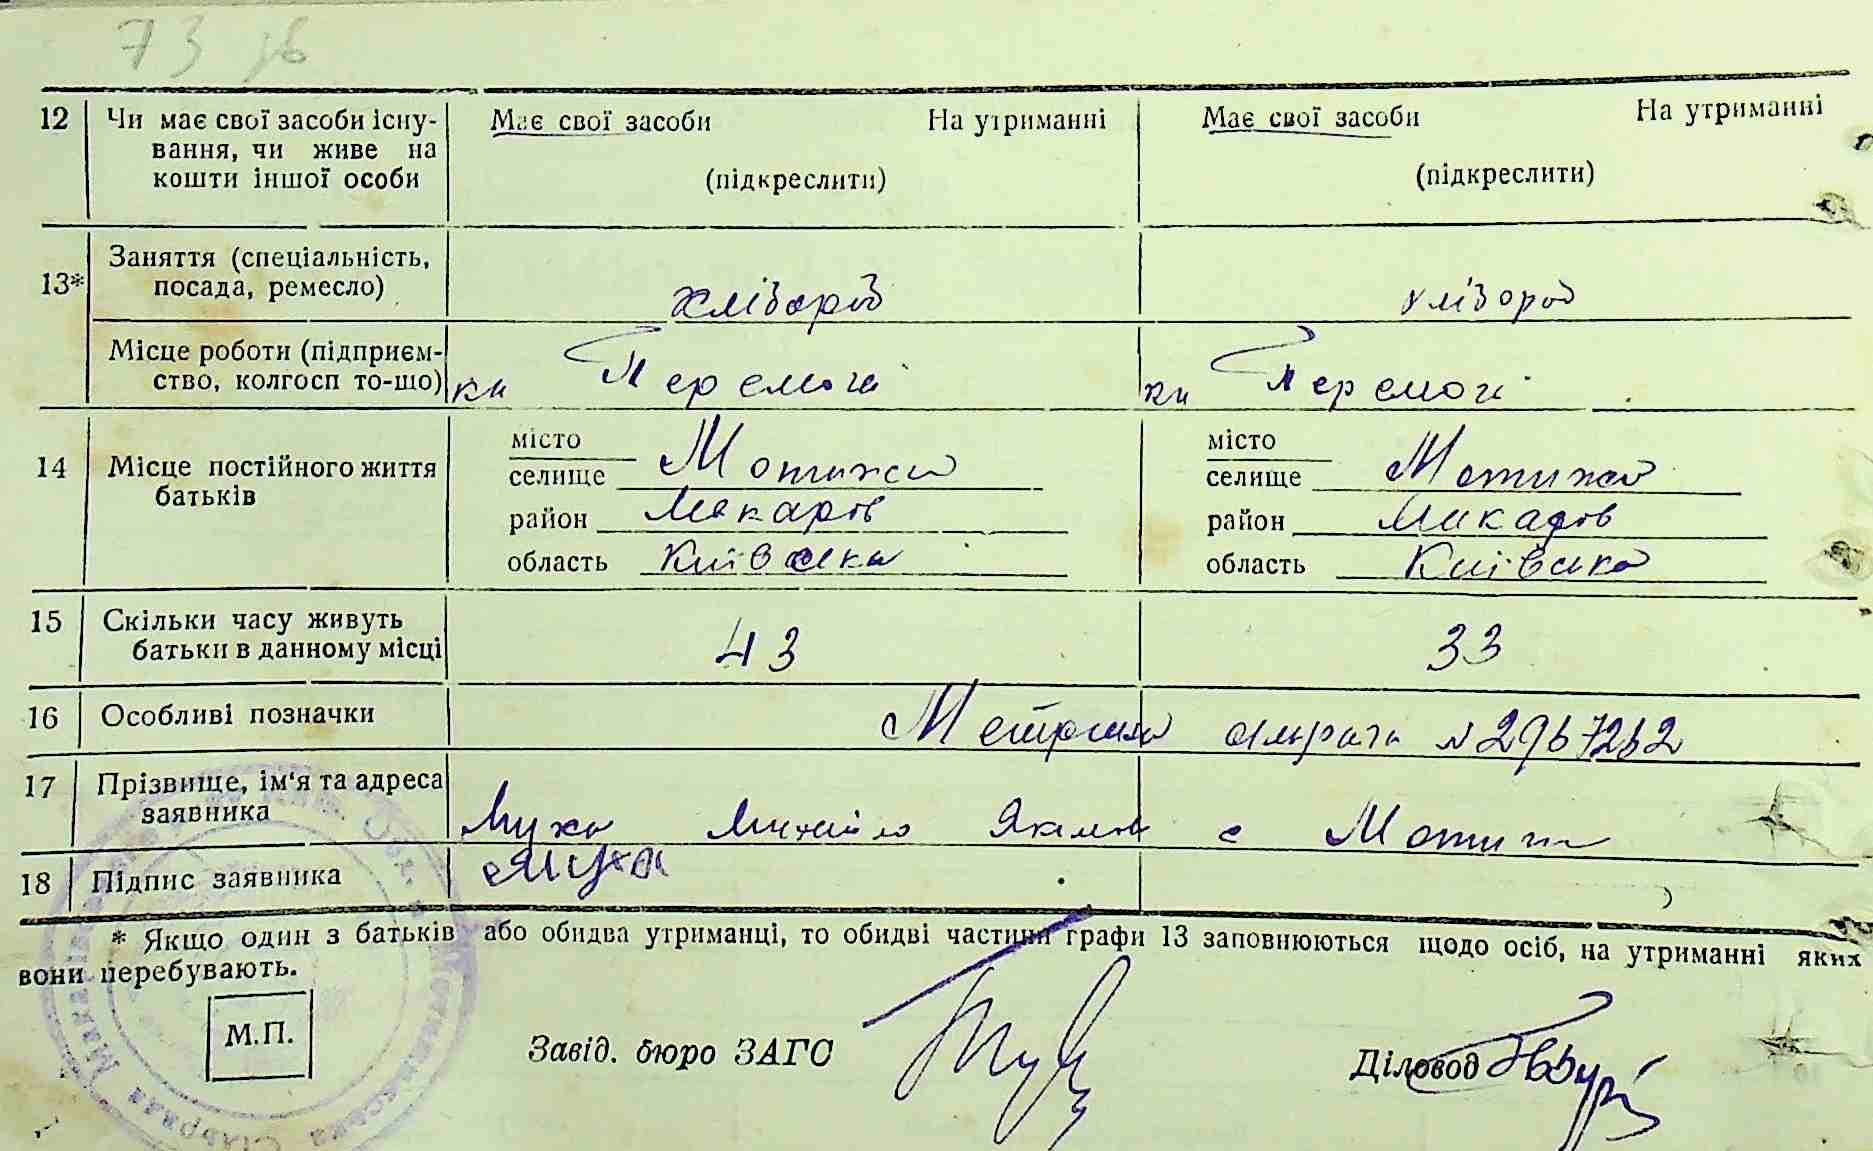 73 зв
12 Чи має свої засоби існу- Має свої засоби На утриманні Має свої засоби На утриманні
вання, чи живе на
кошти іншої особи (підкреслити) (підкреслити)
13* Заняття (спеціальність,
посада, ремесло) хлібороб хлібороб
Місце роботи (підприєм-
ство, колгосп то-що) Перемога Перемогі
14 Місце постійного життя
батьків
місто місто
селище Мотижи селище Мотижи
район Макарів район Макарів
область Київська область Київська
15 Скільки часу живуть
батьки в данному місці 43 33
16 Особливі позначки Метрика № 2967262
17 Прізвище, ім'я та адреса
заявника Муха Михайло Яким с Мотиж
18 Підпис заявника Муха
* Якщо один з батьків або обидва утриманці, то обидві частини графи 13 заповнюються щодо осіб, на утриманні яких
вони перебувають.
М.П.
Завід. бюро ЗАГС Діловод